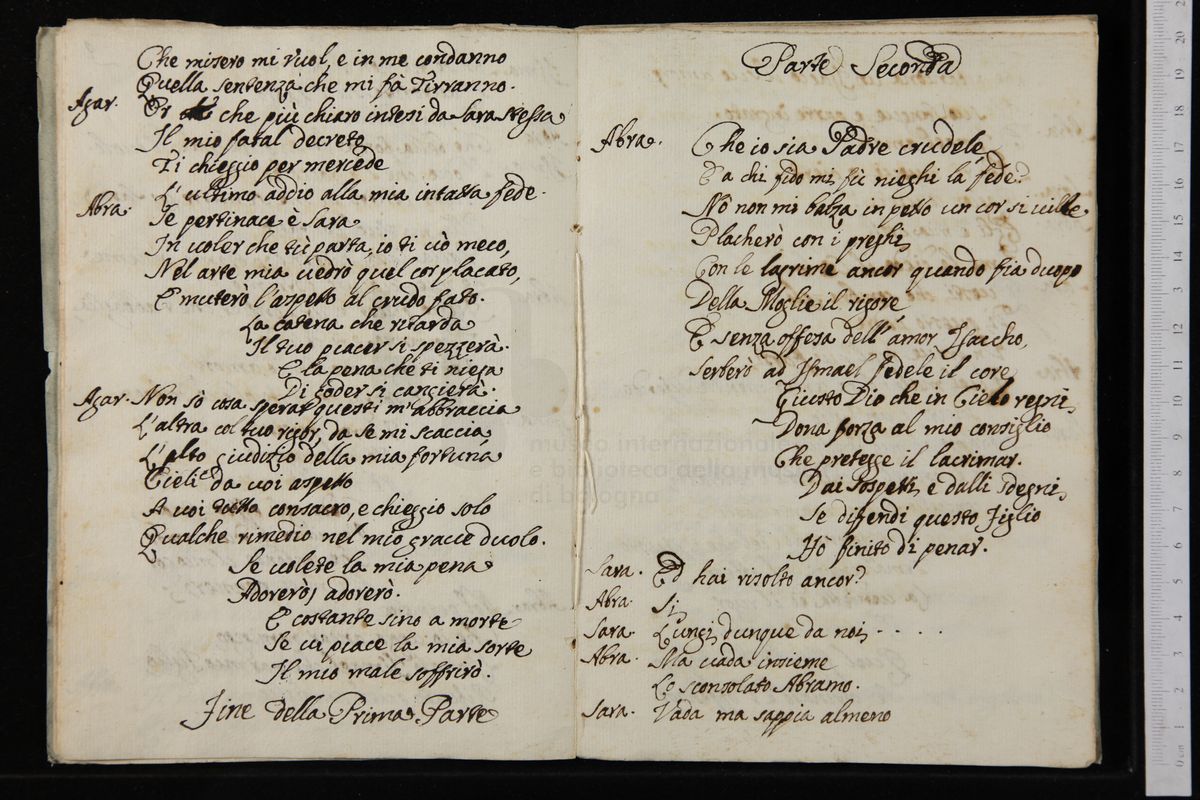 Che misero mi vuol, e in me condanno
Quella sentenza che mi fà Tirranno.
Agar. Or che più chiaro intesi da Sara stessa
Il mio fatal decreto
Ti chieggio per mercede
L'ultimo addio alla mia intatta fede.
Abra. Se pertinace è Sara
In voler che tù parta, io ti vò meco,
Nel arte mia vedrò quel cor placato,
E muterò l'aspetto al crudo fato.
La catena che ritarda
Il tuo piacer si spezzerà.
E la pena che ti niega
Di goder si cancierà.
Agar. Non sò cosa sperar questi m'abbraccia
L'altra col tuo rigor, da se mi scaccia,
L'alto giudizio della mia fortuna
Cieli da voi aspetto
A voi tutto consacro, e chieggio solo
Qualche rimedio nel mio grave duolo.
Se volete la mia pena
Adorerò, adorerò.
E costante sino a morte
Se vi piace la mia sorte
Il mio male soffrirò.
Fine della Prima Parte
Parte Seconda
Abra. Che io sia Padre crudele
Da chi fido mi fù nieghi la fede?
Nò non mi balza in petto un cor si vile
Placherò con i preghi,
Con le lagrime ancor quando fia d'uopo
Della Moglie il rigore,
E senza offesa dell'amor Isaccho,
Serberò ad Ismael fedele il core
Giusto Dio che in Cielo regni,
Dona forza al mio consiglio
Che protegge il lacrimar.
Dai sospetti, e dalli sdegni,
Se difendi questo figlio
Hò finito di penar.
Sara. Ed hai risolto ancor?
Abra. Si,
Sara. Lungi, dunque da noi, . . . .
Abra. Ma vada insieme
Lo sconsolato Abramo.
Sara. Vada ma sappia almeno
museo internazionale
e biblioteca della musica
di bologna